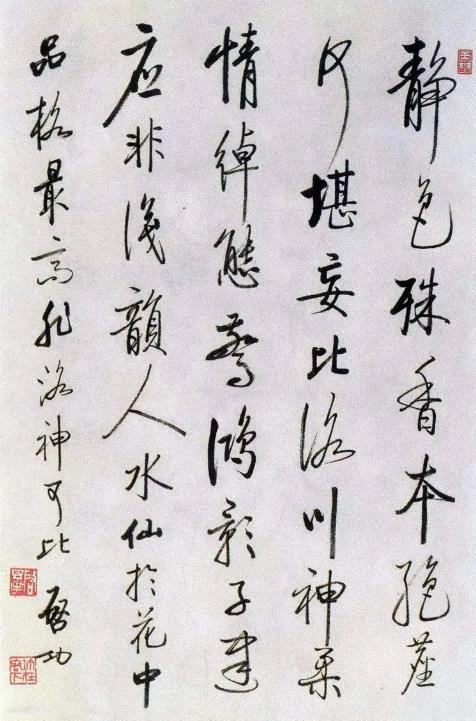 静色殊香本絕塵
何堪妄比洛川神柔
情綽態驚鴻影子建
应非淺韻人水仙於花中
品格最高非洛神可比 啓功